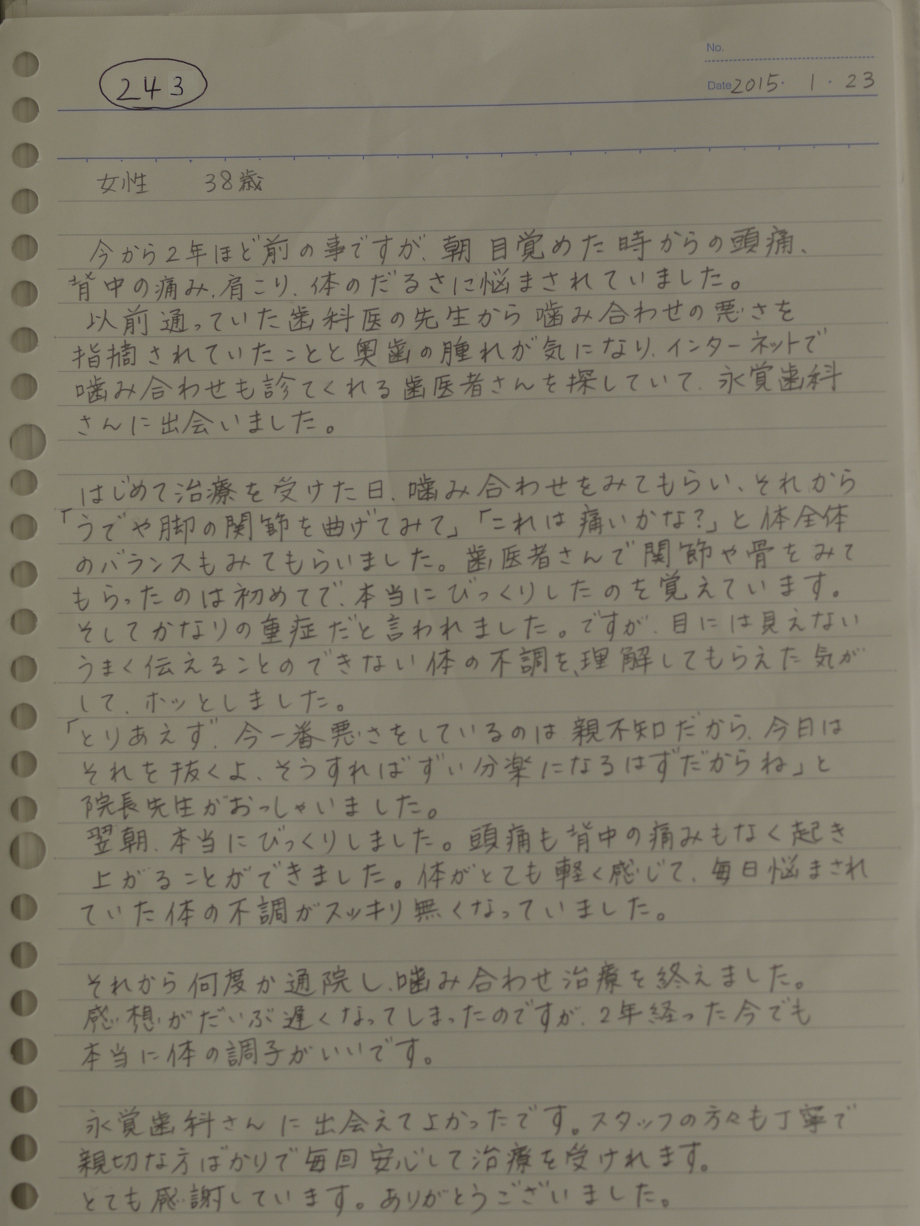 No.
243
Date 2015. 1. 23
女性 38歳
今から2年ほど前の事ですが、朝目覚めた時からの頭痛、
背中の痛み、肩こり、体のだるさに悩まされていました。
以前通っていた歯科医の先生から噛み合わせの悪さを
指摘されていたことと奥歯の腫れが気になり、インターネットで
噛み合わせも診てくれる歯医者さんを探していて、永覚歯科
さんに出会いました。
はじめて治療を受けた日、噛み合わせをみてもらい、それから
「うでや脚の関節を曲げてみて」「これは痛いかな?」と体全体
のバランスもみてもらいました。歯医者さんで関節や骨をみて
もらったのは初めてで、本当にびっくりしたのを覚えています。
そしてかなりの重症だと言われました。ですが、目には見えない
うまく伝えることのできない体の不調を、理解してもらえた気が
して、ホッとしました。
「とりあえず、今一番悪さをしているのは親不知だから、今日は
それを抜くよ、そうすればずい分楽になるはずだからね」と
院長先生がおっしゃいました。
翌朝、本当にびっくりしました。頭痛も背中の痛みもなく起き
上がることができました。体がとても軽く感じて、毎日悩まされ
ていた体の不調がスッキリ無くなっていました。
それから何度か通院し、噛み合わせ治療を終えました。
感想がだいぶ遅くなってしまったのですが、2年経った今でも
本当に体の調子がいいです。
永覚歯科さんに出会えてよかったです。スタッフの方々も丁寧で
親切な方ばかりで毎回安心して治療を受けれます。
とても感謝しています。ありがとうございました。